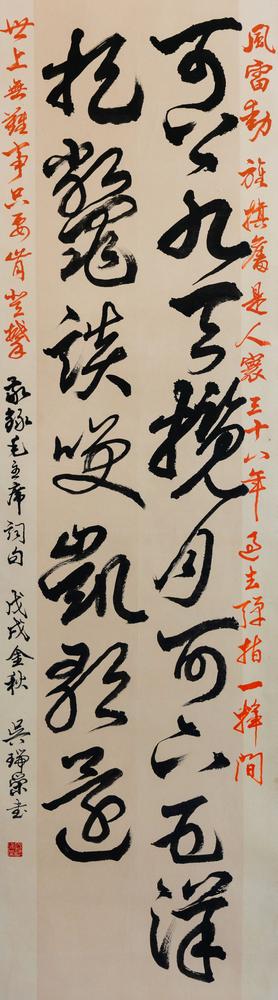 風雷動旌旗奮是人寰三十八年過去彈指一揮間
可上九天攬月可下五洋
捉鼈談咲凱歌還
世上無難事只要肯登攀 敬録毛主席詞句 戊戌金秋 吳瑞榮書